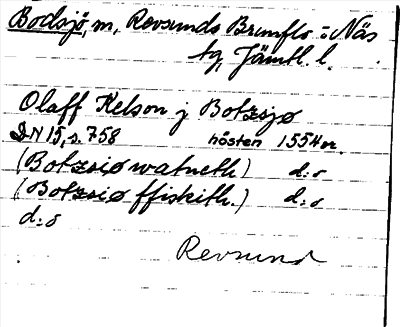 Bodsjö, m, Revsunds Brunflo o Näs
tg, Jämtl. l.
Olaff Kelson j Botzsjø
DN 15, s. 758 hösten 1554 m.
(Botzsiø watneth) d:o
(Botzsiø ffiskith.) d:o
d:o
Revsund